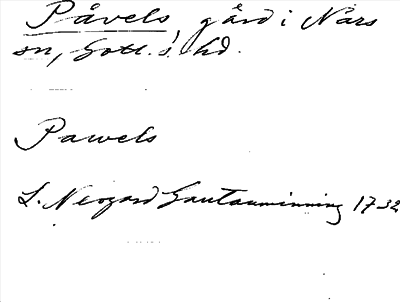 Påvels, gård i När s
sn, Gotl. s. hd.
Pawels
L. Neogard Gautauminning 1732